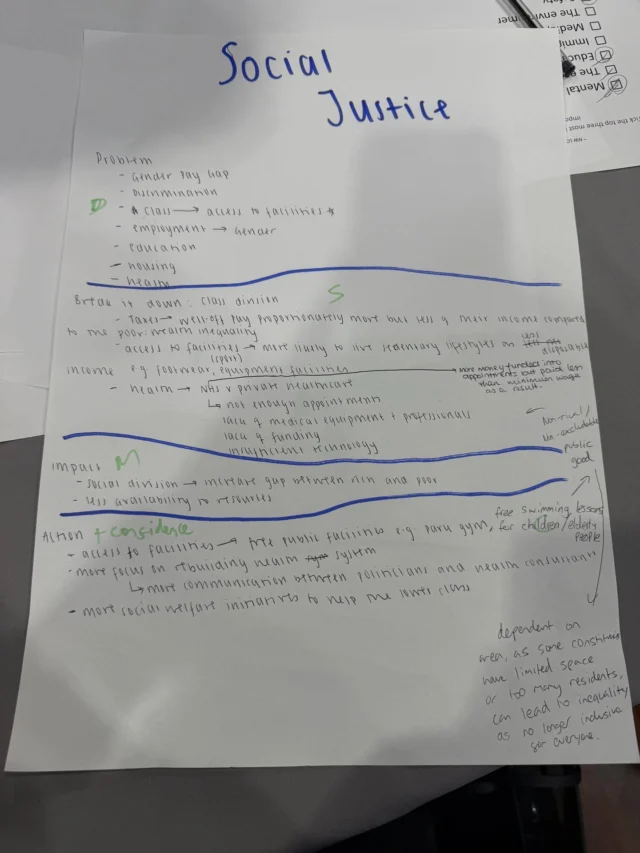 Social
Justice
Problem
- Gender Pay Gap
- Discrimination
D - class → access to facilities
- employment → Gender
- education
- housing
- health
Break it down: class division S
- Taxes → well-off pay proportionately more but less of their income compared
to the poor: health inequality
- access to facilities → more likely to live sedentary lifestyles on less disposable
(sport)
income e.g footwear, equipment facilities → more money funded into
appointments but paid less
than minimum wage
as a result.
- health → NHS v private healthcare
↳ not enough appointments
lack of medical equipment + professionals
lack of funding
insufficient technology
Non-rival/
Non-excludable
public
good
Impact M
- social division → increase gap between rich and poor
- less availability to resources
Action + confidence
- access to facilities → free public facilities e.g. park gym, free swimming lessons
for children/elderly
people
- more focus on rebuilding health system
↳ more communication between politicians and health consultant
- more social welfare initiatives to help the lower class
dependent on
area, as some
have limited space
or too many residents,
can lead to inequality
as no longer inclusive
for everyone.
Mental
The e
Educ
Immi
Medi
The envir